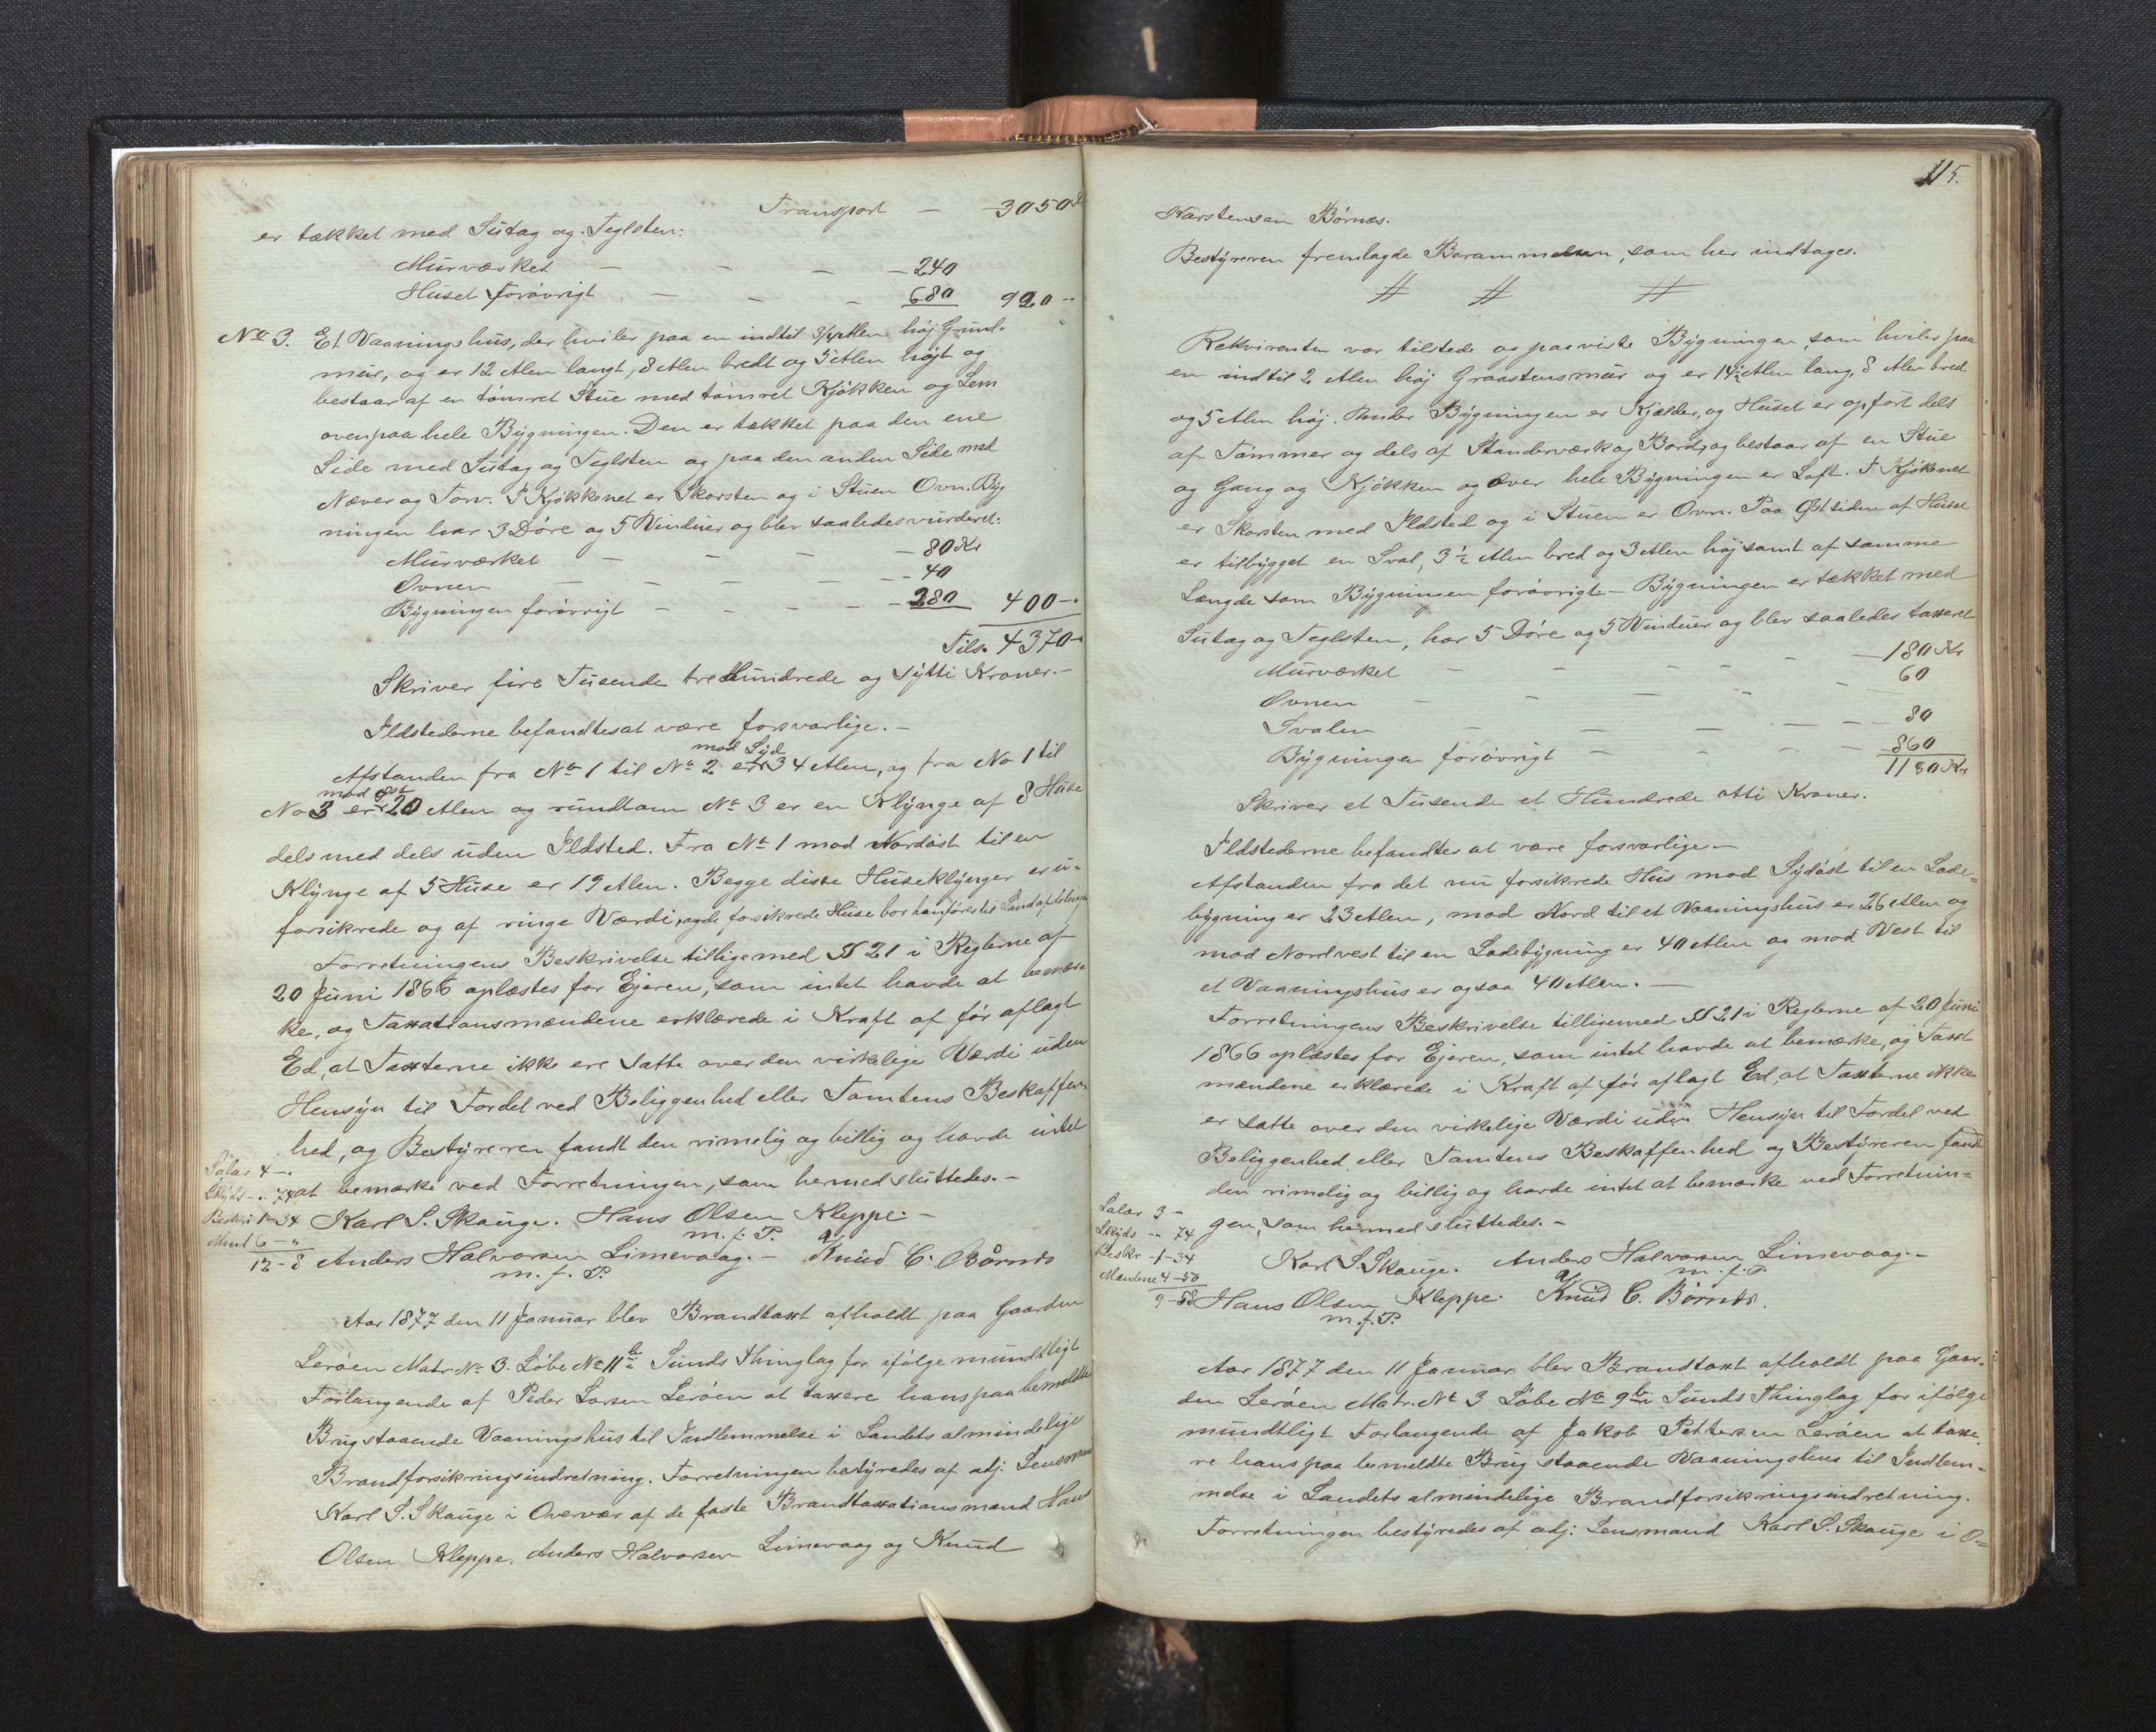 Transport — 3050 Kr
er tækket med Sutag og Teglsten:
Murværket — — — — 240
Huset forøvrigt — — — 680 920 -"
No 3. Et Vaaningshus, der hviler paa en indtil 3/4 Alen høj Grund-
mur, og er 12 Alen langt, 8 Alen bredt og 5 Alen højt og
bestaar af en tømret Stue med tømret Kjøkken og Lem
ovenpaa hele Bygningen. Den er tækket paa den ene
Side med Sutag og Teglsten og paa den anden Side med
Næver og Torv. I Kjøkkenet er Skorsten og i Stuen Ovn. Byg
ningen har 3 Døre og 5 Vinduer og blev saaledes vurderet:
Murværket — — — — 80 Kr
Ovnen — — — — — 40
Bygningen forøvrigt — — — — — 280 400 -"
Tils. 4370 -"
Skriver fire Tusende tre Hundrede og Sytti Kroner. —
Ildstederne befandtes at være forsvarlige. —
Afstanden fra No 1 til No 2 mod Syd er 34 Alen, og fra No 1 til
No 3 mod Øst er 20 Alen og rundtom No 3 er en Klynge af 8 Huse
dels med dels uden Ildsted. Fra No 1 mod Nordøst til en
Klynge af 5 Huse er 19 Alen. Begge disse Huseklynger er u-
forsikrede og af ringe Værdi, og de forsikrede Huse bør henføres til Landafdelingen
Forretningens Beskrivelse tilligemed § 21 i Reglerne af
20 Juni 1866 oplæstes for Ejeren, som intet havde at bemær-
ke, og Taxationsmændene erklærede i Kraft af før aflagt
Ed, at Taxterne ikke ere satte over den virkelige Værdi uden
Hensyn til Fordel ved Beliggenhed eller Tomtens Beskaffen-
hed, og Bestyreren fandt den rimelig og billig og havde intet
at bemærke ved Forretningen, som hermed sluttedes. —
Salar 4 -"
Skyds - " 74
Beskr. 1 - 34
Mænd 6 - "
12 - 8
Karl S. Skauge. Hans Olsen Kleppe. —
m. f. P.
Anders Halvorsen Limevaag. — Knud C. Børnes
m. f. P.
Aar 1877 den 11 Januar blev Brandtaxt afholdt paa Gaarden
Lerøen Matr. No 3. Løbe No 11 b i Sunds Thinglag for ifølge mundtligt
Forlangende af Peder Larsen Lerøen at taxere hans paa bemeldte
Brug staaende Vaaningshus til Indlemmelse i Landets almindelige
Brandforsikringsindretning. Forretningen bestyredes af adj. Lensmand
Karl S. Skauge i Overvær af de faste Brandtaxationsmænd Hans
Olsen Kleppe, Anders Halvorsen Limevaag og Knud
115.
Karstensen Børnes.
Bestyreren fremlagde Berammelsen, som her indtages.
# # #
Rekvirenten var tilstede og paaviste Bygningen, som hviler paa
en indtil 2 Alen høj Graastensmur og er 14 1/2 Alen lang, 8 Alen bred
og 5 Alen høj. Under Bygningen er Kjælder, og Huset er opført dels
af Tømmer og dels af Standerværk og Bord, og bestaar af en Stue
og Gang og Kjøkken og over hele Bygningen er Loft. I Kjøkenet
er Skorsten med Ildsted og i Stuen er Ovn. Paa Østsiden af Huset
er tilbygget en Sval, 3 1/2 Alen bred og 3 Alen høj samt af samme
Længde som Bygningen forøvrigt — Bygningen er tækket med
Sutag og Teglsten, har 5 Døre og 5 Vinduer og blev saaledes taxeret
Murværket — — — — — 180 Kr
Ovnen — — — — — 60
Svalen — — — — — 80
Bygningen forøvrigt — — — — 860
1180 Kr
Skriver et Tusende et Hundrede otti Kroner.
Ildstederne befandtes at være forsvarlige. —
Afstanden fra det nu forsikrede Hus mod Sydøst til en Lade-
bygning er 23 Alen, mod Nord til et Vaaningshus er 26 Alen og
mod Nordvest til en Ladebygning er 40 Alen og mod Vest til
et Vaaningshus er ogsaa 40 Alen. —
Forretningens Beskrivelse tilligemed § 21 i Reglerne af 20 Juni
1866 oplæstes for Ejeren, som intet havde at bemærke, og Taxt
mændene erklærede i Kraft af før aflagt Ed, at Taxterne ikke
er satte over den virkelige Værdi uden Hensyn til Fordel ved
Beliggenhed eller Tomtens Beskaffenhed og Bestyreren fandt
den rimelig og billig og havde intet at bemærke ved Forretnin-
gen, som hermed sluttedes. —
Salar 3 -
Skyds - " 74
Beskr - 1 - 34
Mændene 4 - 50
9 - 58
Karl S. Skauge. Anders Halvorsen Limevaag. —
m. f. P
Hans Olsen Kleppe. Knud C. Børnes.
m. f. P.
Aar 1877 den 11 Januar blev Brandtaxt afholdt paa Gaar-
den Lerøen Matr. No 3 Løbe No 9 b i Sunds Thinglag for ifølge
mundtligt Forlangende af Jakob Pettersen Lerøen at taxe-
re hans paa bemeldte Brug staaende Vaaningshus til Indlem-
melse i Landets almindelige Brandforsikringsindretning.
Forretningen bestyredes af adj. Lensmand Karl S. Skauge i O-